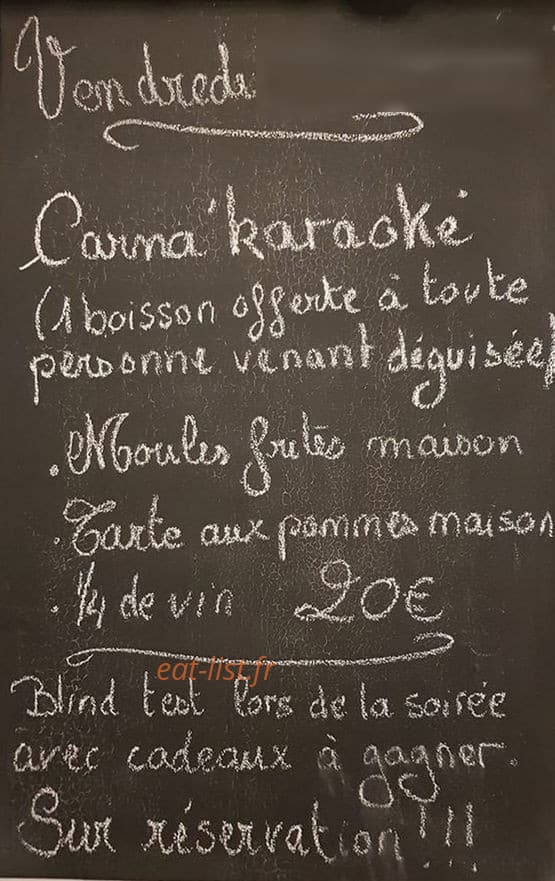 Vendredi
Carna'karaoké
(1 boisson offerte à toute
personne venant déguisée)
. Moules frites maison
. Tarte aux pommes maison
. 1/4 de vin 20€
eat-list.fr
Blind test lors de la soirée
avec cadeaux à gagner.
Sur réservation !!!